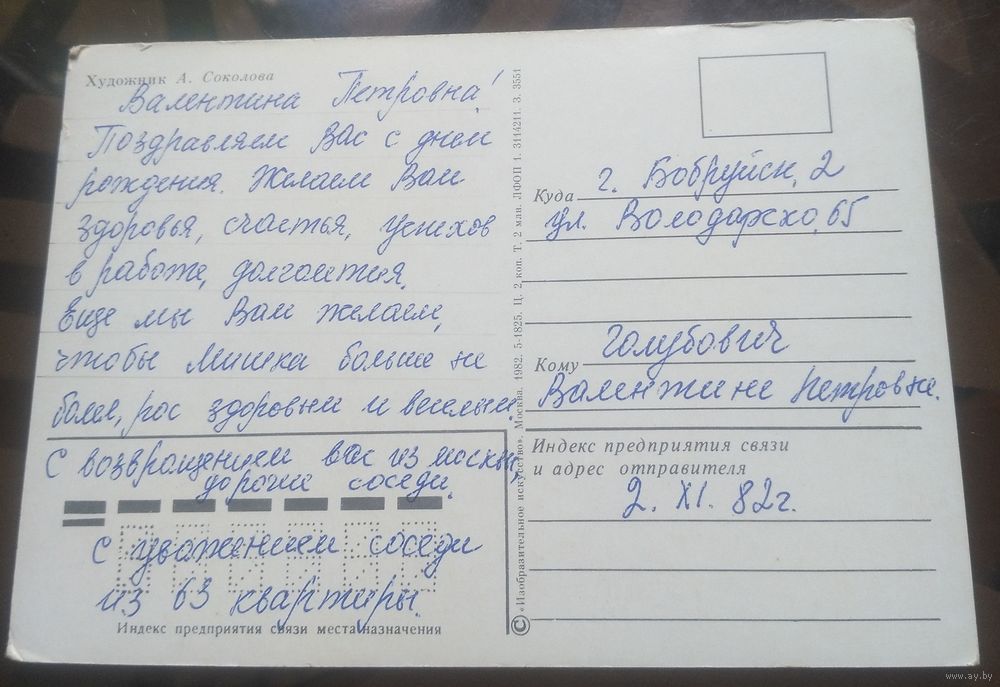 Художник А. Соколова
Валентина Петровна!
Поздравляем Вас с днем
рождения. Желаем Вам
здоровья, счастья, успехов
в работе, долголетия.
Еще мы Вам желаем,
чтобы Мишка больше не
болел, рос здоровым и веселым.
С возвращением вас из москвы,
дорогие соседи.
С уважением соседи
из 63 квартиры.
Индекс предприятия связи места назначения
© «Изобразительное искусство», Москва. 1982. 5-1825. Ц. 2 коп. Т. 2 млн. ЛФОП 1. 3114211. З. 3551
Куда г. Бобруйск, 2
ул. Володарско, 65
Кому Голубович
Валентине Петровне.
Индекс предприятия связи
и адрес отправителя
2. XI. 82г.
www.ay.by